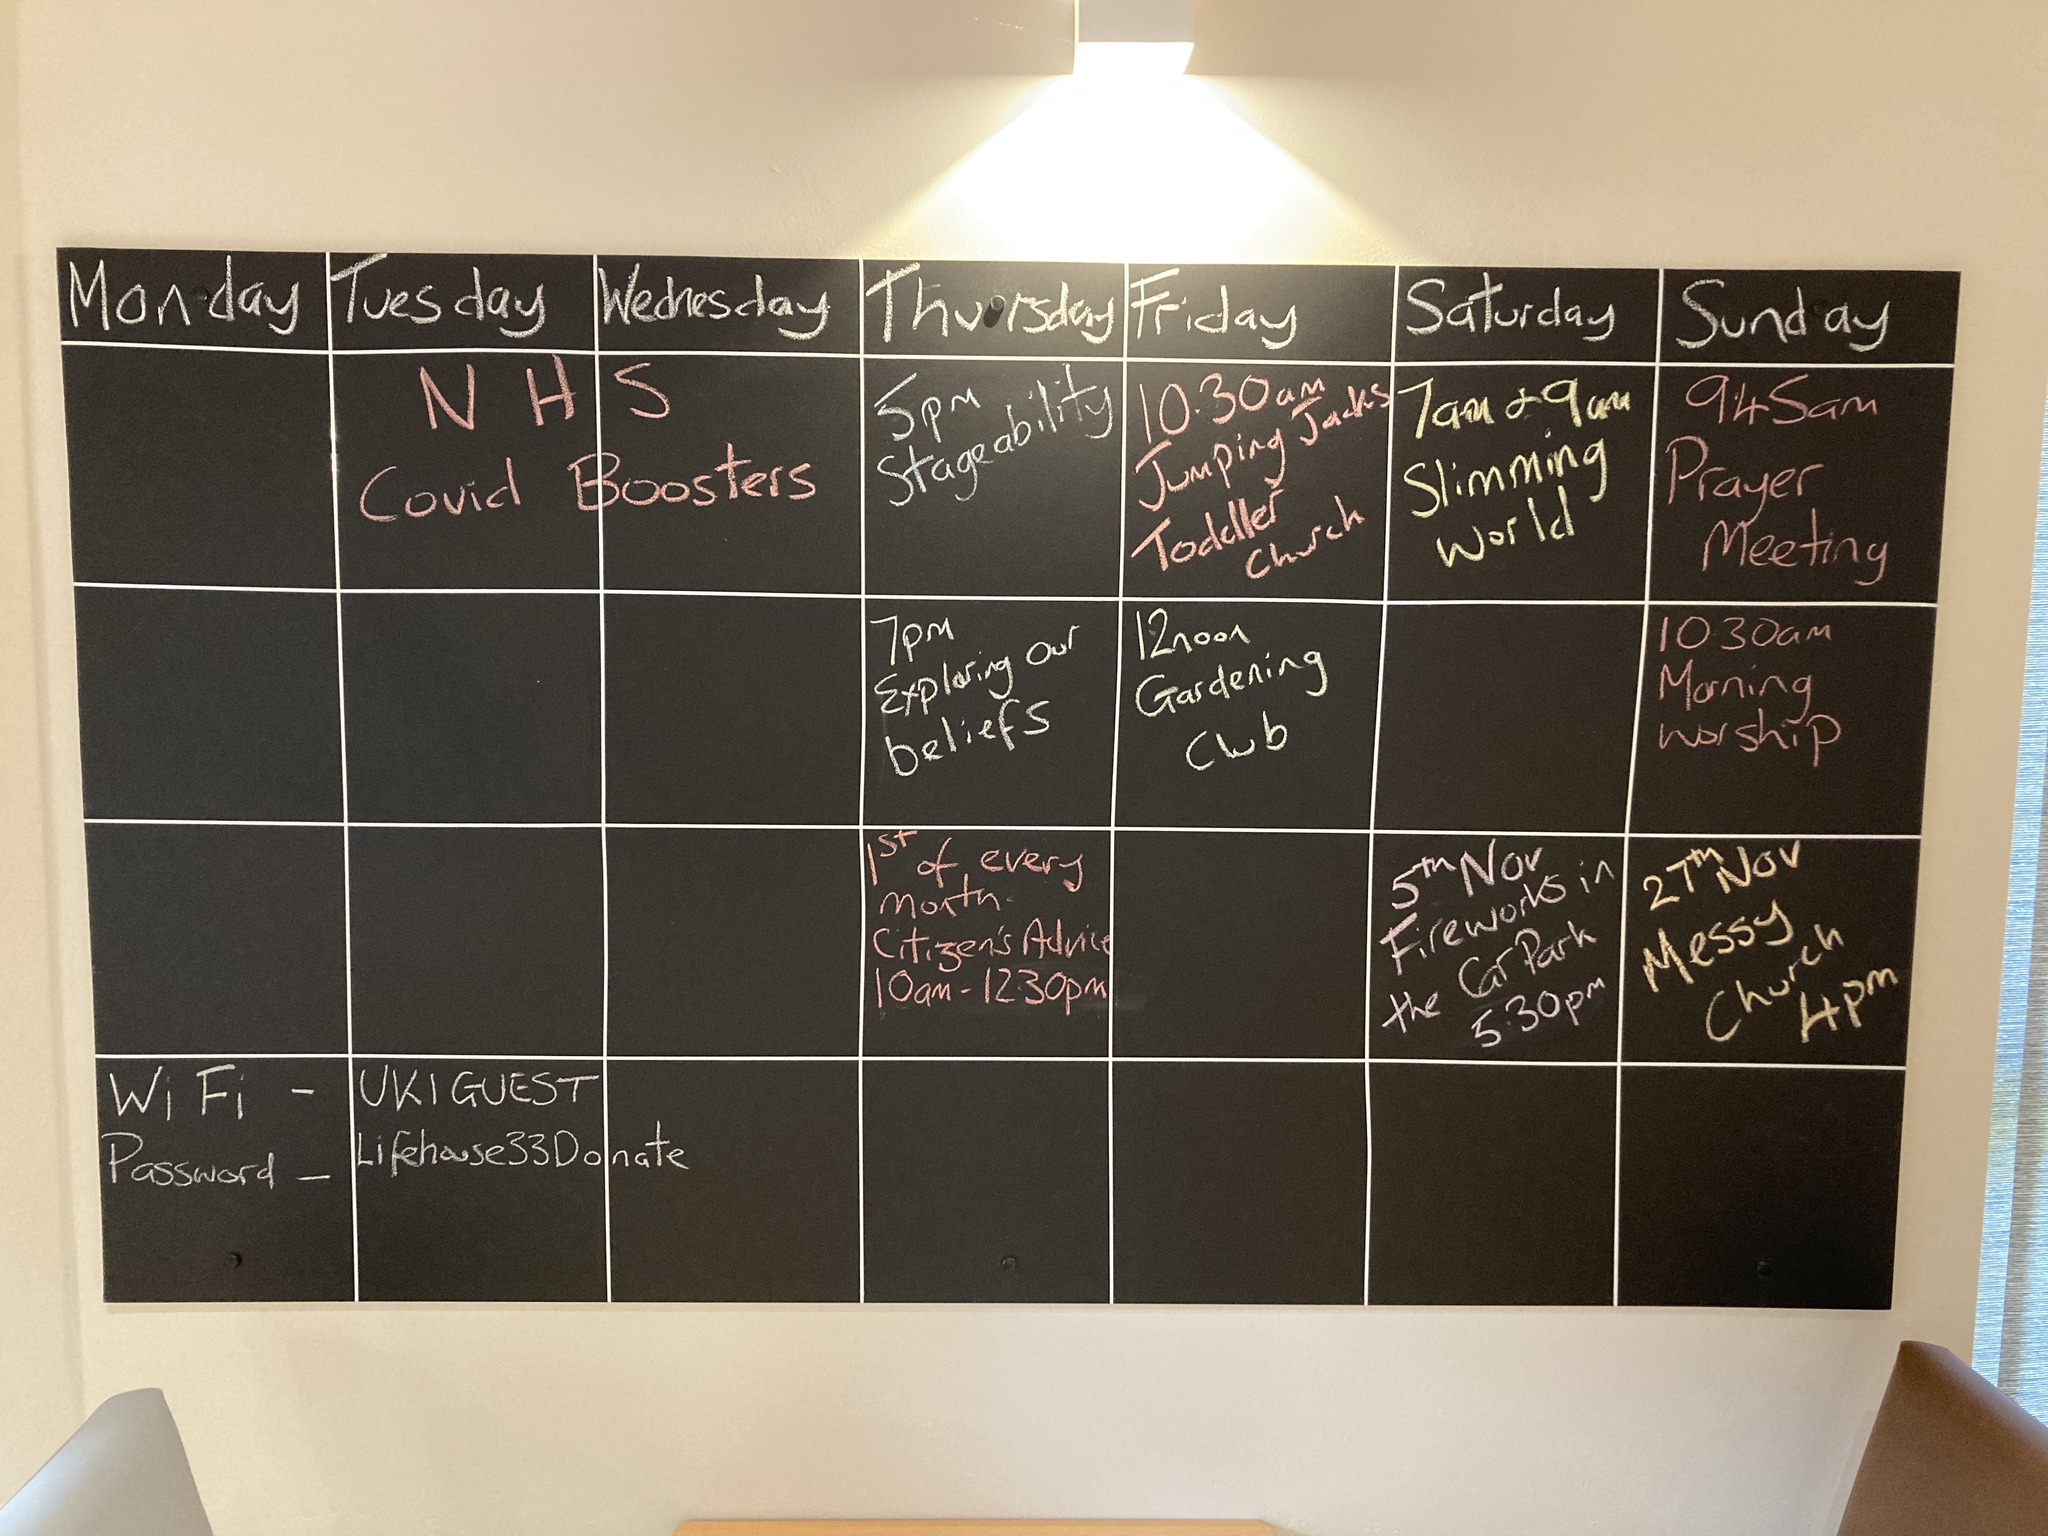 Monday Tuesday Wednesday Thursday Friday Saturday Sunday
N H S
Covid Boosters
5pm
Stageability
10.30am
Jumping Jacks
Toddler
Church
7am & 9am
Slimming
World
945am
Prayer
Meeting
7pm
Exploring our
beliefs
12noon
Gardening
Club
1030am
Morning
worship
1st of every
month-
Citizen's Advice
10am - 1230pm
5th Nov
Fireworks in
the Car Park
5.30pm
27th Nov
Messy
Church
4pm
WiFi - UKIGUEST
Password - Lifehouse33Donate